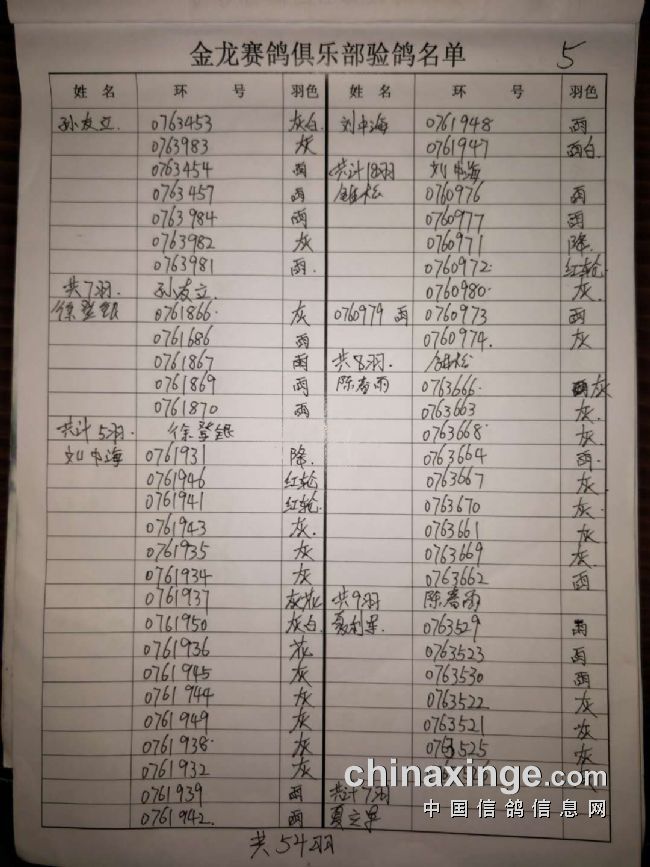 金龙赛鸽俱乐部验鸽名单 5
姓 名 环 号 羽色 姓 名 环 号 羽色
孙友立. 0763453 灰白
0763983 灰
0763454 雨
0763457 雨
0763984 雨
0763982 灰
0763981 雨.
共7羽. 孙友立.
徐登银 0761866. 灰
0761686 雨
0761867 雨
0761869 雨
0761870 雨
共计5羽. 徐登银
刘中海 0761931 降.
0761946 红轮
0761941 红轮
0761943 灰.
0761935 灰
0761934 灰
0761937 灰花
0761950 灰白
0761936 花
0761945 灰
0761944 灰
0761949 灰
0761938. 灰
0761932 灰
0761939 雨
0761942. 雨
刘中海 0761948 雨
0761947 雨白.
共计18羽 刘中海
0760976 雨
0760977 雨
0760971 降.
0760972. 红轮.
0760980. 灰
0760979 雨 0760973 雨
0760974. 灰
共8羽.
陈春雨 0763666. 灰
0763663 灰.
0763668. 灰
0763664 雨.
0763667 灰.
0763670 灰.
0763661 灰.
0763669 灰.
0763662 雨
共9羽 陈春雨
0763529 雨
0763523 雨
0763530 雨
0763522 灰
0763521 灰
0763525 灰
共计7羽
共54羽
chinaxinge.com
中国信鸽信息网